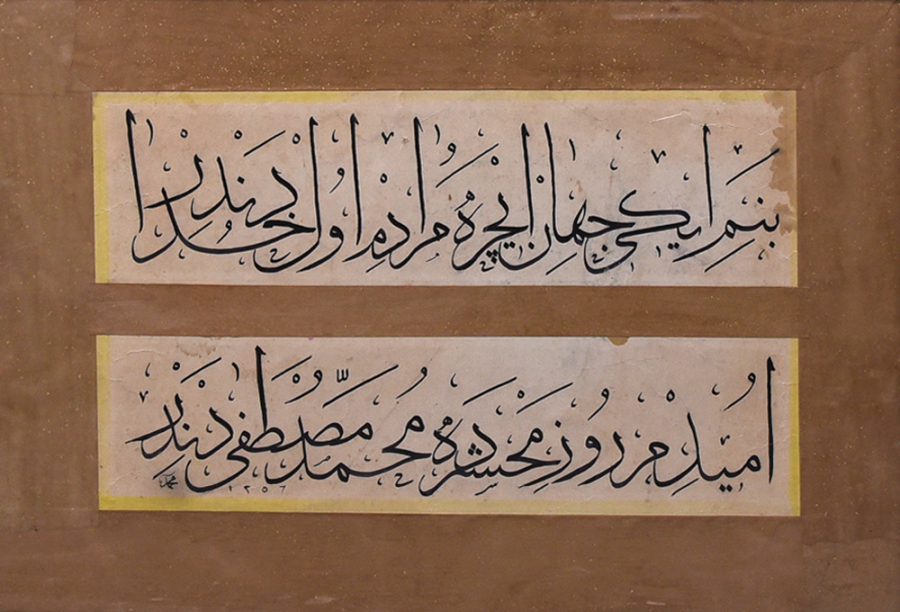 بنم ایکی جهان ایچره مرادم اول خدادندر
امیدم روز محشرده محمد مصطفی دندر
محمد ١٢٥٦